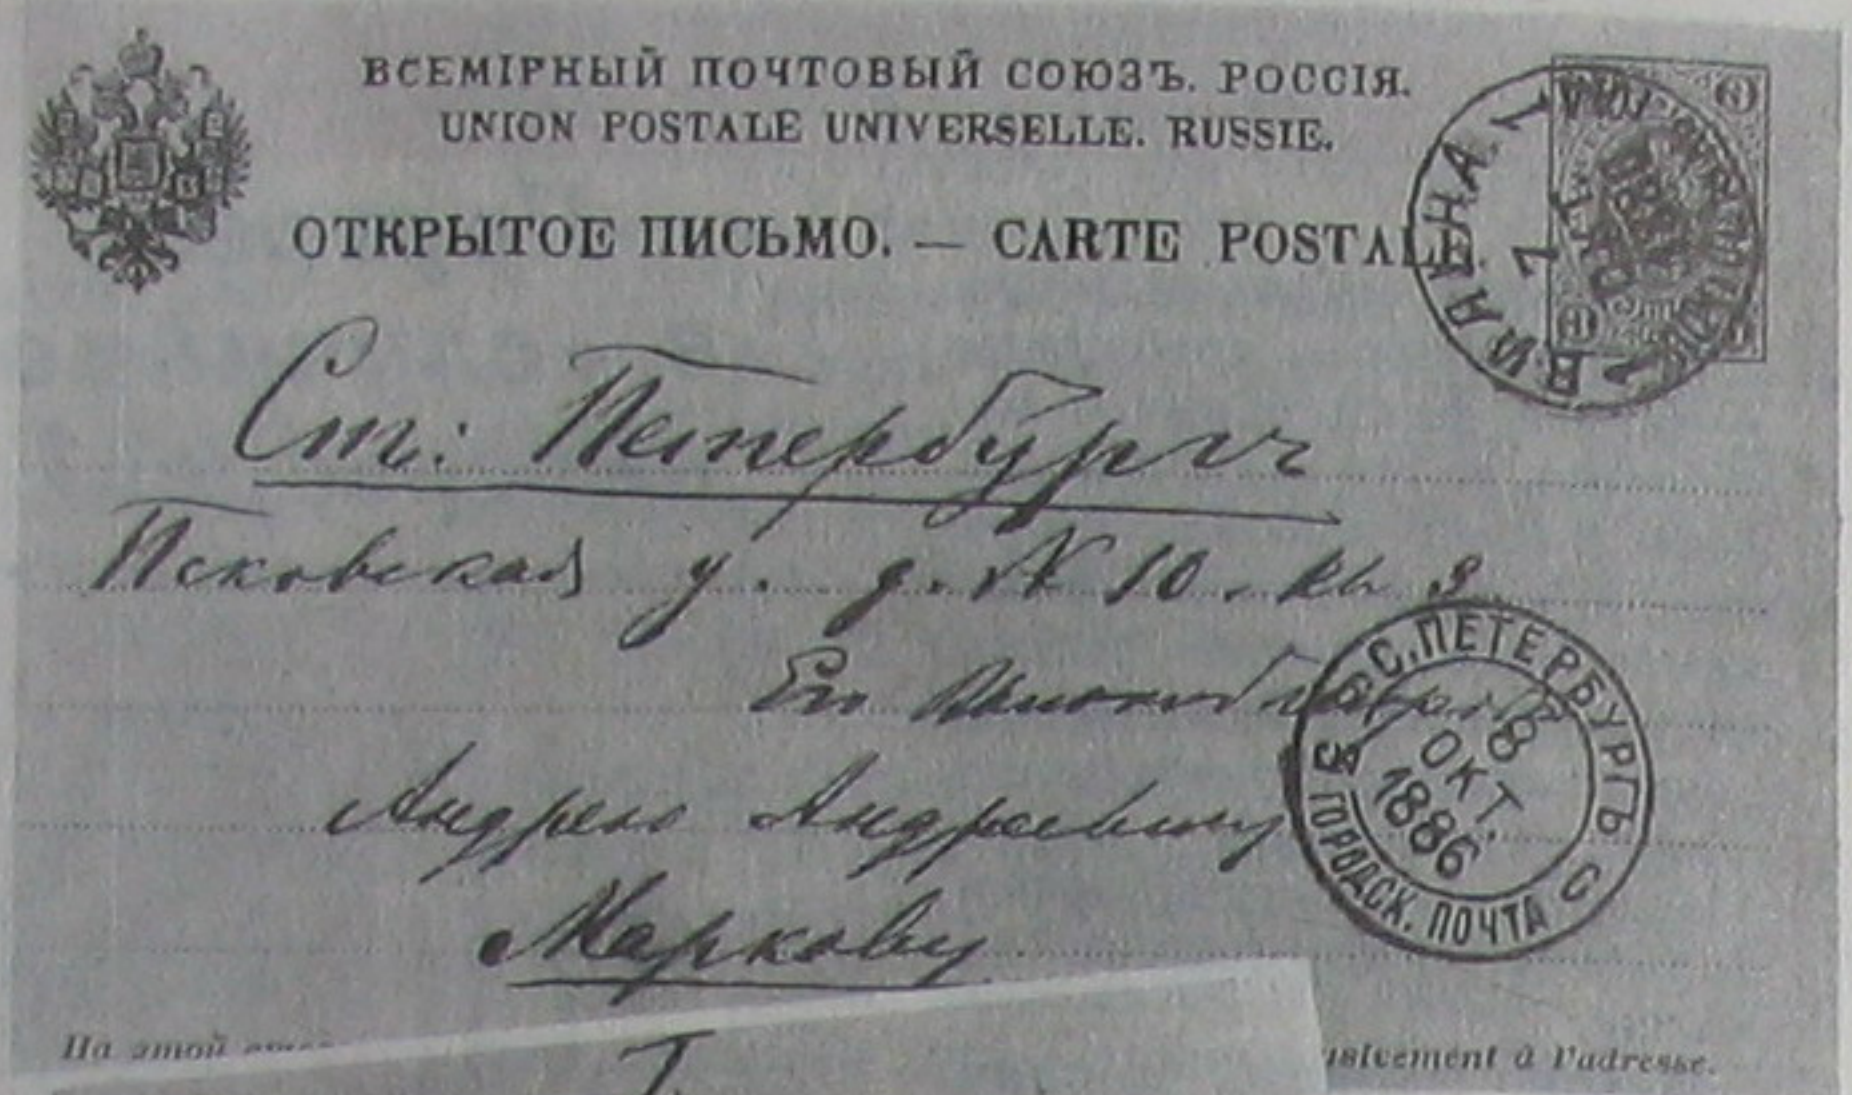 ВСЕМІРНЫЙ ПОЧТОВЫЙ СОЮЗЪ. РОССІЯ.
UNION POSTALE UNIVERSELLE. RUSSIE.
ОТКРЫТОЕ ПИСЬМО. — CARTE POSTALE.
ВИЛЬНА. 1
7
Ст: Петербургъ
Псковская у. д. № 10. кв 3
Его Высокоблагородію
Андрею Андреевичу
Маркову
С.ПЕТЕРБУРГЪ
8
ОКТ.
1886
ГОРОДСК. ПОЧТА
На этой
à l'adresse.